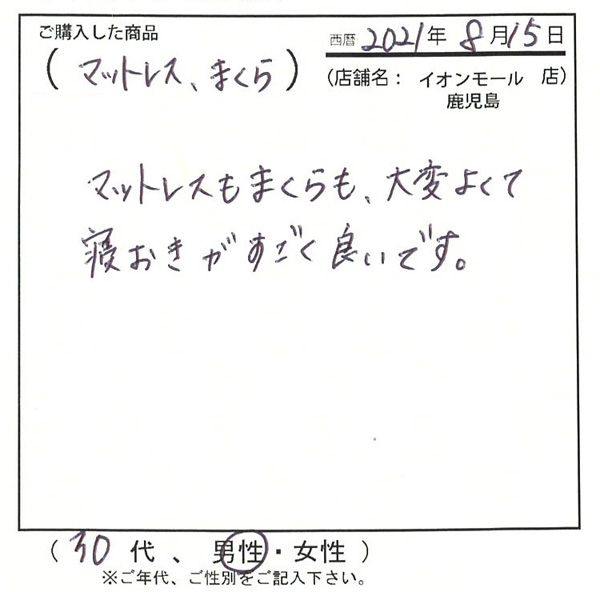 ご購入した商品
西暦 2021年 8月15日
（マットレス、まくら）
（店舗名： イオンモール 店）
鹿児島
マットレスもまくらも、大変よくて
寝おきがすごく良いです。
（ 30 代 、 男性・女性 ）
※ご年代、ご性別をご記入下さい。